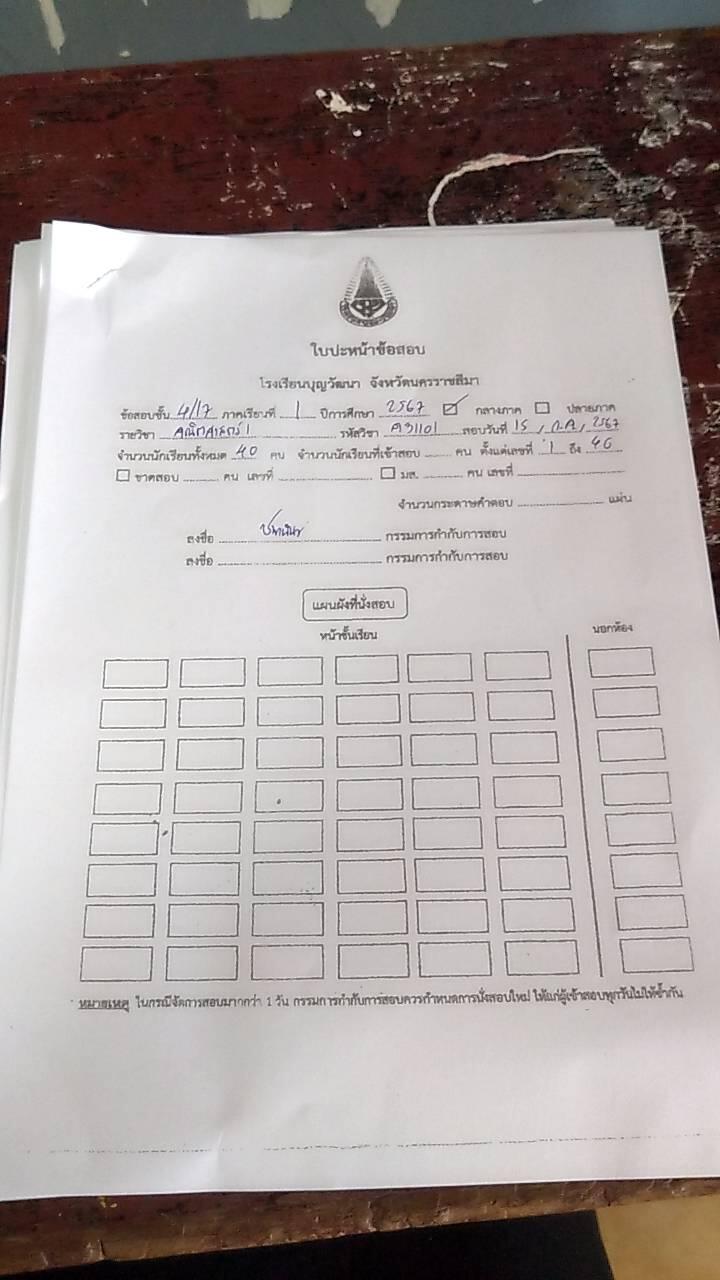 ใบปะหน้าข้อสอบ
โรงเรียนบุญวัฒนา จังหวัดนครราชสีมา
ข้อสอบชั้น 4/17 ภาคเรียนที่ 1 ปีการศึกษา 2567 กลางภาค ปลายภาค
รายวิชา คณิตศาสตร์ 1 รหัสวิชา ค31101 สอบวันที่ 15 / ก.ค. / 2567
จำนวนนักเรียนทั้งหมด 40 คน จำนวนนักเรียนที่เข้าสอบ ........ คน ตั้งแต่เลขที่ 1 ถึง 40
ขาดสอบ ........ คน เลขที่ ........ มส. ........ คน เลขที่ ........
จำนวนกระดาษคำตอบ ........ แผ่น
ลงชื่อ ........ กรรมการกำกับการสอบ
ลงชื่อ ........ กรรมการกำกับการสอบ
แผนผังที่นั่งสอบ
หน้าชั้นเรียน นอกห้อง
หมายเหตุ ในกรณีจัดการสอบมากกว่า 1 วัน กรรมการกำกับการสอบควรกำหนดการนั่งสอบใหม่ ให้แก่ผู้เข้าสอบทุกวันไม่ให้ซ้ำกัน